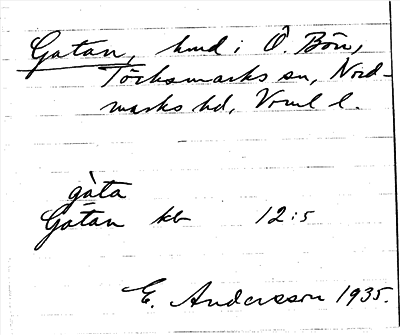 Gatan, hmd i Ö. Bön,
Töcksmarks sn, Nord-
marks hd, Vrml l.
gàta
Gatan kb 12:5
E. Andersson 1935.